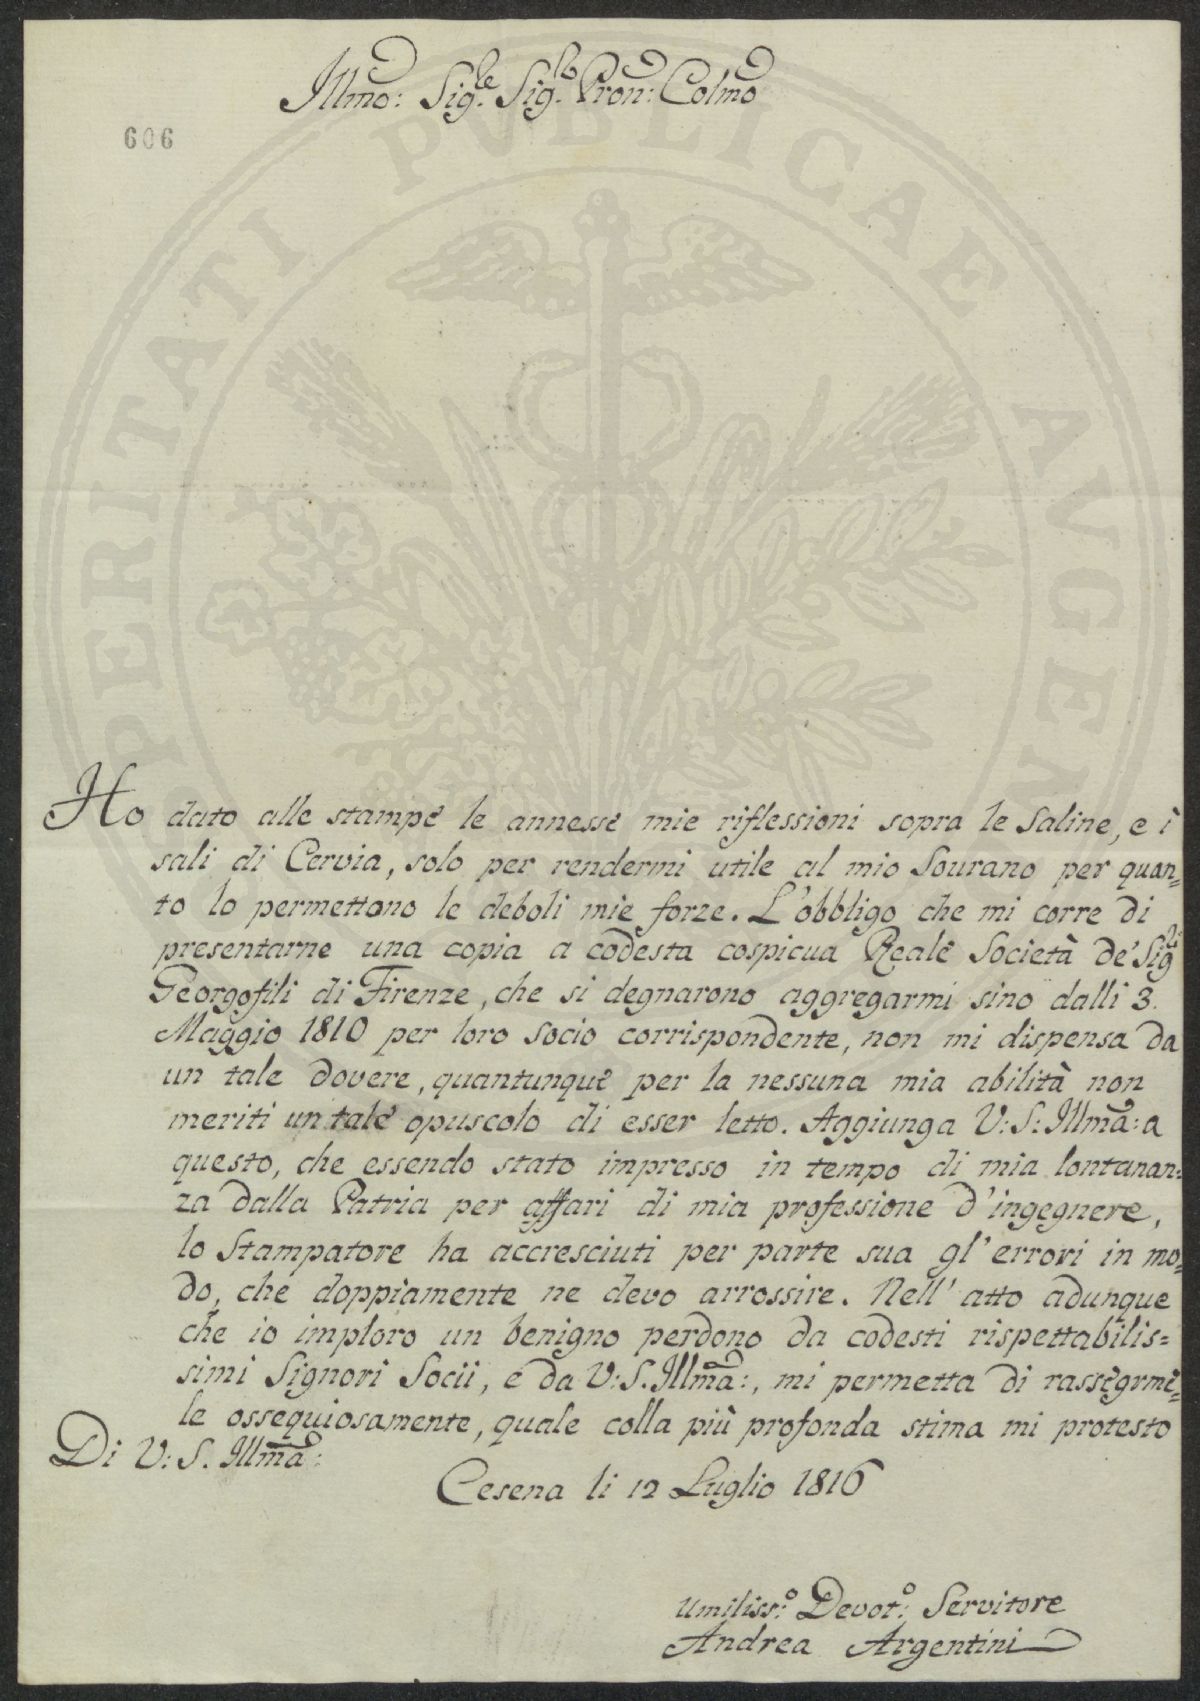 Illmo: Sig.le Sig.r Pron: Colmo
606
PROSPERITATI PUBLICAE AUGENDAE
Ho dato alle stampe le annesse mie riflessioni sopra le Saline, e i
sali di Cervia, solo per rendermi utile al mio Sourano per quan=
to lo permettono le deboli mie forze. L'obbligo che mi corre di
presentarne una copia a codesta cospicua Reale Società de' Sig.ri
Georgofili di Firenze, che si degnarono aggregarmi sino dalli 3.
Maggio 1810 per loro socio corrispondente, non mi dispensa da
un tale dovere, quantunque per la nessuna mia abilità non
meriti un tale opuscolo di esser letto. Aggiunga V: S: Illma: a
questo, che essendo stato impresso in tempo di mia lontanan=
za dalla Patria per affari di mia professione d'ingegnere,
lo Stampatore ha accresciuti per parte sua gl' errori in mo=
do, che doppiamente ne devo arrossire. Nell' atto adunque
che io imploro un benigno perdono da codesti rispettabilis=
simi Signori Socii, e da V: S. Illma:, mi permetta di rassegrme=
le ossequiosamente, quale colla più profonda stima mi protesto
Di V: S. Illma:
Cesena li 12 Luglio 1816
Umiliss:o Devot:o Servitore
Andrea Argentini